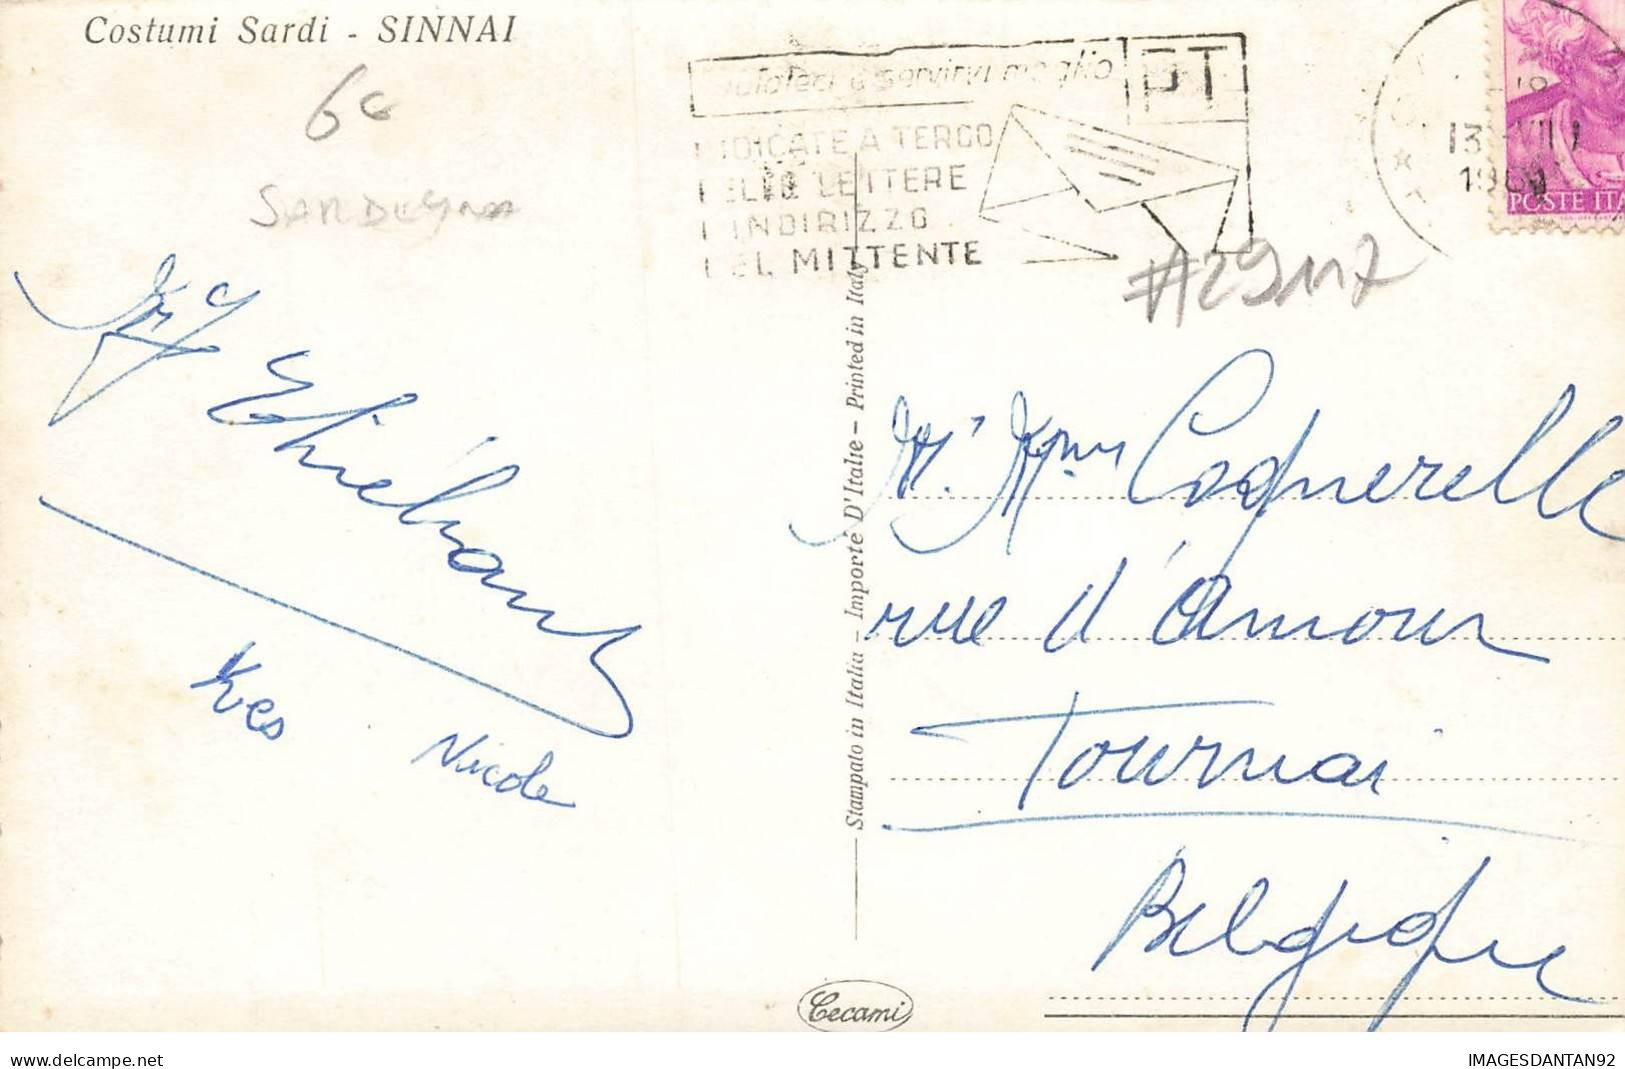 Costumi Sardi - SINNAI
6€
SARDEGNA
aiutateci a servirvi meglio
PT
INDICATE A TERGO
DELLE LETTERE
L'INDIRIZZO
DEL MITTENTE
13 VII
POSTE ITA
#29117
Thiébaut
Yves
Nicole
Stampato in Italia – Importé D'Italie – Printed in Italy
Mr. Mme Coquerelle
rue d'Amour
Tournai
Belgique
Cecami
delcampe.net
IMAGESDANTAN92